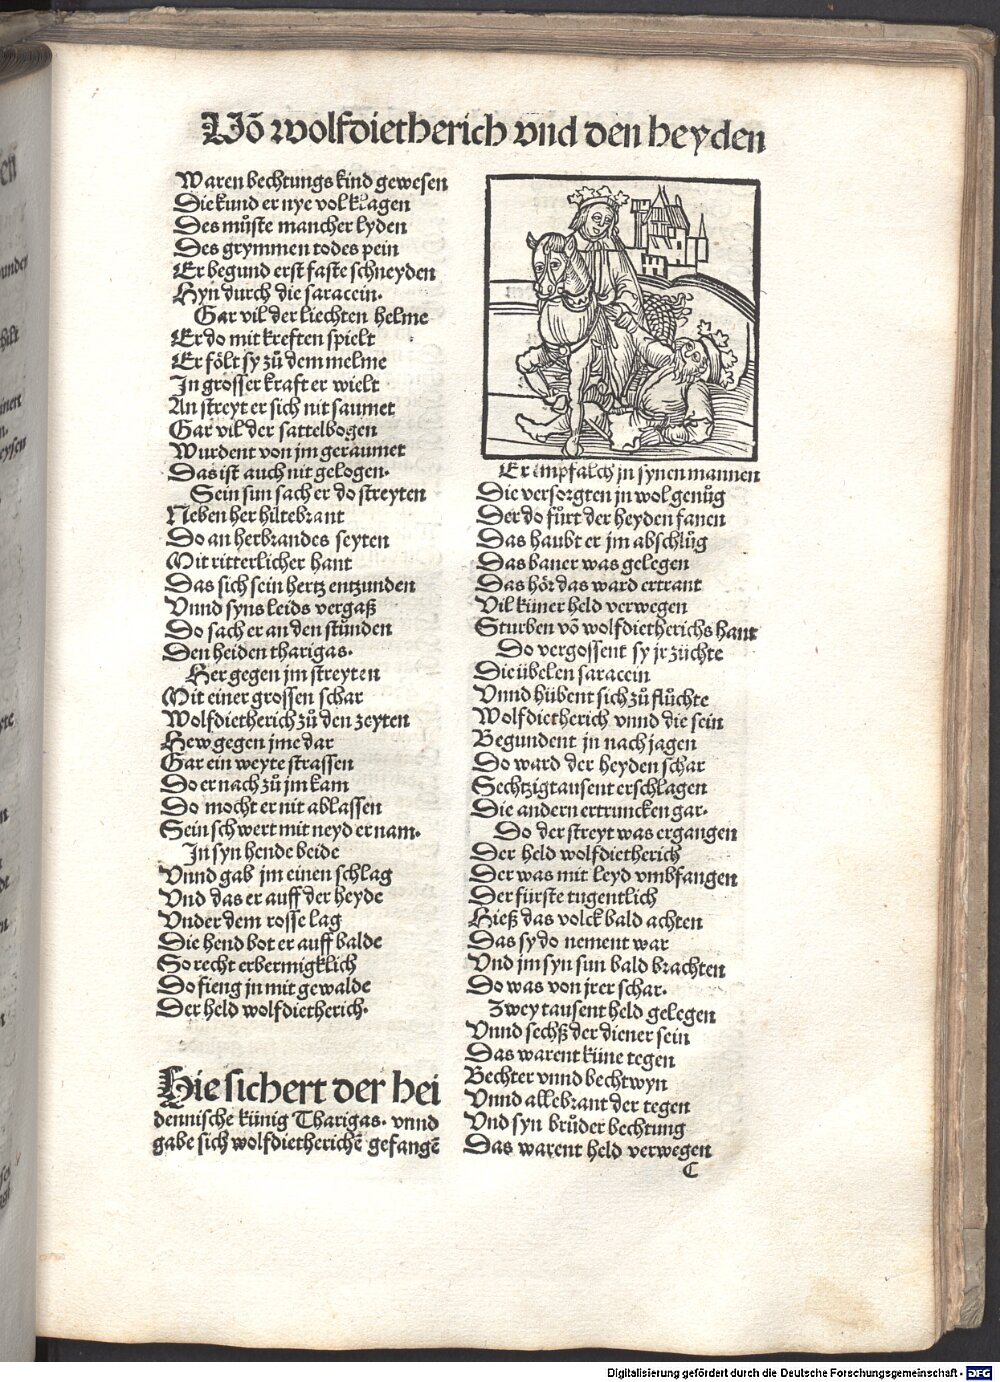 Vō wolfdietherich vnd den heyden
Waren bechtungs kind gewesen
Die kund er nye vol klagen
Des můste mancher lyden
Des grymmen todes pein
Er begund erst faste schneyden
Hyn durch die saracein.
Gar vil der liechten helme
Er do mit kreften spielt
Er fölt sy zů dem melme
In grosser kraft er wielt
An streyt er sich nit saumet
Gar vil der sattelbogen
Wurdent von jm geraumet
Das ist auch nit gelogen.
Sein sun sach er do streyten
Neben her hiltebrant
Do an herbrandes seyten
Mit ritterlicher hant
Das sich sein hertz entzunden
Vnnd syns leids vergaß
Do sach er an den stunden
Den heiden tharigas.
Her gegen jm streyten
Mit einer grossen schar
Wolfdietherich zů den zeyten
Hew gegen jme dar
Gar ein weyte strassen
Do er nach zů jm kam
Do mocht er nit ablassen
Sein schwert mit neyd er nam.
In syn hende beide
Vnnd gab jm einen schlag
Vnd das er auff der heyde
Vnder dem rosse lag
Die hend bot er auff balde
So recht erbermigklich
Do fieng jn mit gewalde
Der held wolfdietherich.
Hie sichert der hei
dennische künig Tharigas. vnnd
gabe sich wolfdietherichē gefangē
Er empfalch jn synen mannen
Die versorgten jn wol genůg
Der do fůrt der heyden fanen
Das haubt er jm abschlůg
Das baner was gelegen
Das hör das ward ertrant
Vil küner held verwegen
Sturben vō wolfdietherichs hant
Do vergossent sy jr züchte
Die übelen saracein
Vnnd hůbent sich zů flüchte
Wolfdietherich vnnd die sein
Begundent jn nach jagen
Do ward der heyden schar
Sechtzigtausent erschlagen
Die andern ertruncken gar.
Do der streyt was ergangen
Der held wolfdietherich
Der was mit leyd vmbfangen
Der fürste tugentlich
Hieß das volck bald achten
Das sy do nement war
Vnd jm syn sun bald brachten
Do was von jrer schar.
Zwey tausent held gelegen
Vnnd sechß der diener sein
Das warent küne tegen
Bechter vnnd bechtwyn
Vnnd allebrant der tegen
Vnd syn brůder bechtung
Das warent held verwegen
C
Digitalisierung gefördert durch die Deutsche Forschungsgemeinschaft - DFG